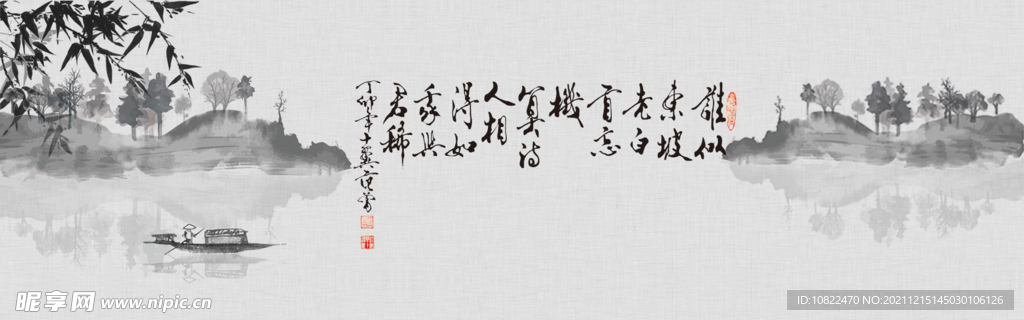 誰似
東坡
老白
首忘
機
算詩
人相
得如
我與
君稀
丁卯十翼范曾
昵享网 www.nipic.cn
ID:10822470 NO:20211215145030106126